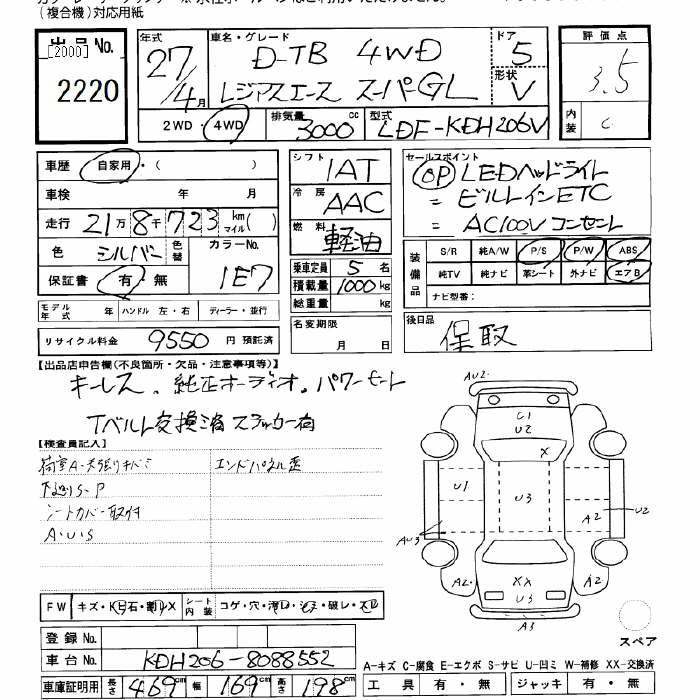 (複合機)対応用紙
出品No. [2000] 2220
年式 27/4月
車名・グレード D-TB 4WD
レジアスエース スーパーGL
ドア 5
形状 V
2WD・4WD 排気量 3000cc 型式 LDF-KDH206V
評価点 3.5
内装 C
車歴 自家用・( )
車検 年 月
走行 21万8千723 km マイル( )
色 シルバー 色替 カラーNo. 1E7
保証書 有・無
モデル年式 年 ハンドル 左・右 ディーラー・並行
リサイクル料金 9550 円 預託済
シフト 1AT
冷房 AAC
燃料 軽油
乗車定員 5 名
積載量 1000 kg
総重量 kg
名変期限 月 日
セールスポイント
OP LEDヘッドライト
= ビルトインETC
= AC100V コンセント
装備品 S/R 純A/W P/S P/W ABS
純TV 純ナビ 革シート 外ナビ エアB
ナビ型番:
後日品 保取
【出品店申告欄(不良箇所・欠品・注意事項等)】
キーレス、純正オーディオ、パワーセート
Tベルト交換済 ステッカー有
【検査員記入】
シートカバー取付
A・U・S
エンドパネル歪
AU2
U1
U2
X
U1
U3
A2
U2
AU3
A2
XX
U3
A2
A3
スペア
FW キズ・ シート内装 コゲ・穴・ 破レ・
登録No.
車台No. KDH206-8088552
車庫証明用 長さ 469cm 幅 169cm 高さ 198cm
A-キズ C-腐食 E-エクボ S-サビ U-凹ミ W-補修 XX-交換済
工具 有・無 ジャッキ 有・無